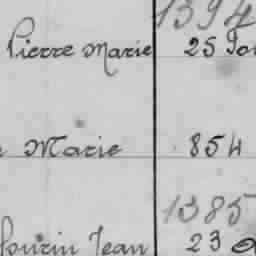 1394
Pierre Marie 25
Marie 854
1385
Jean 23